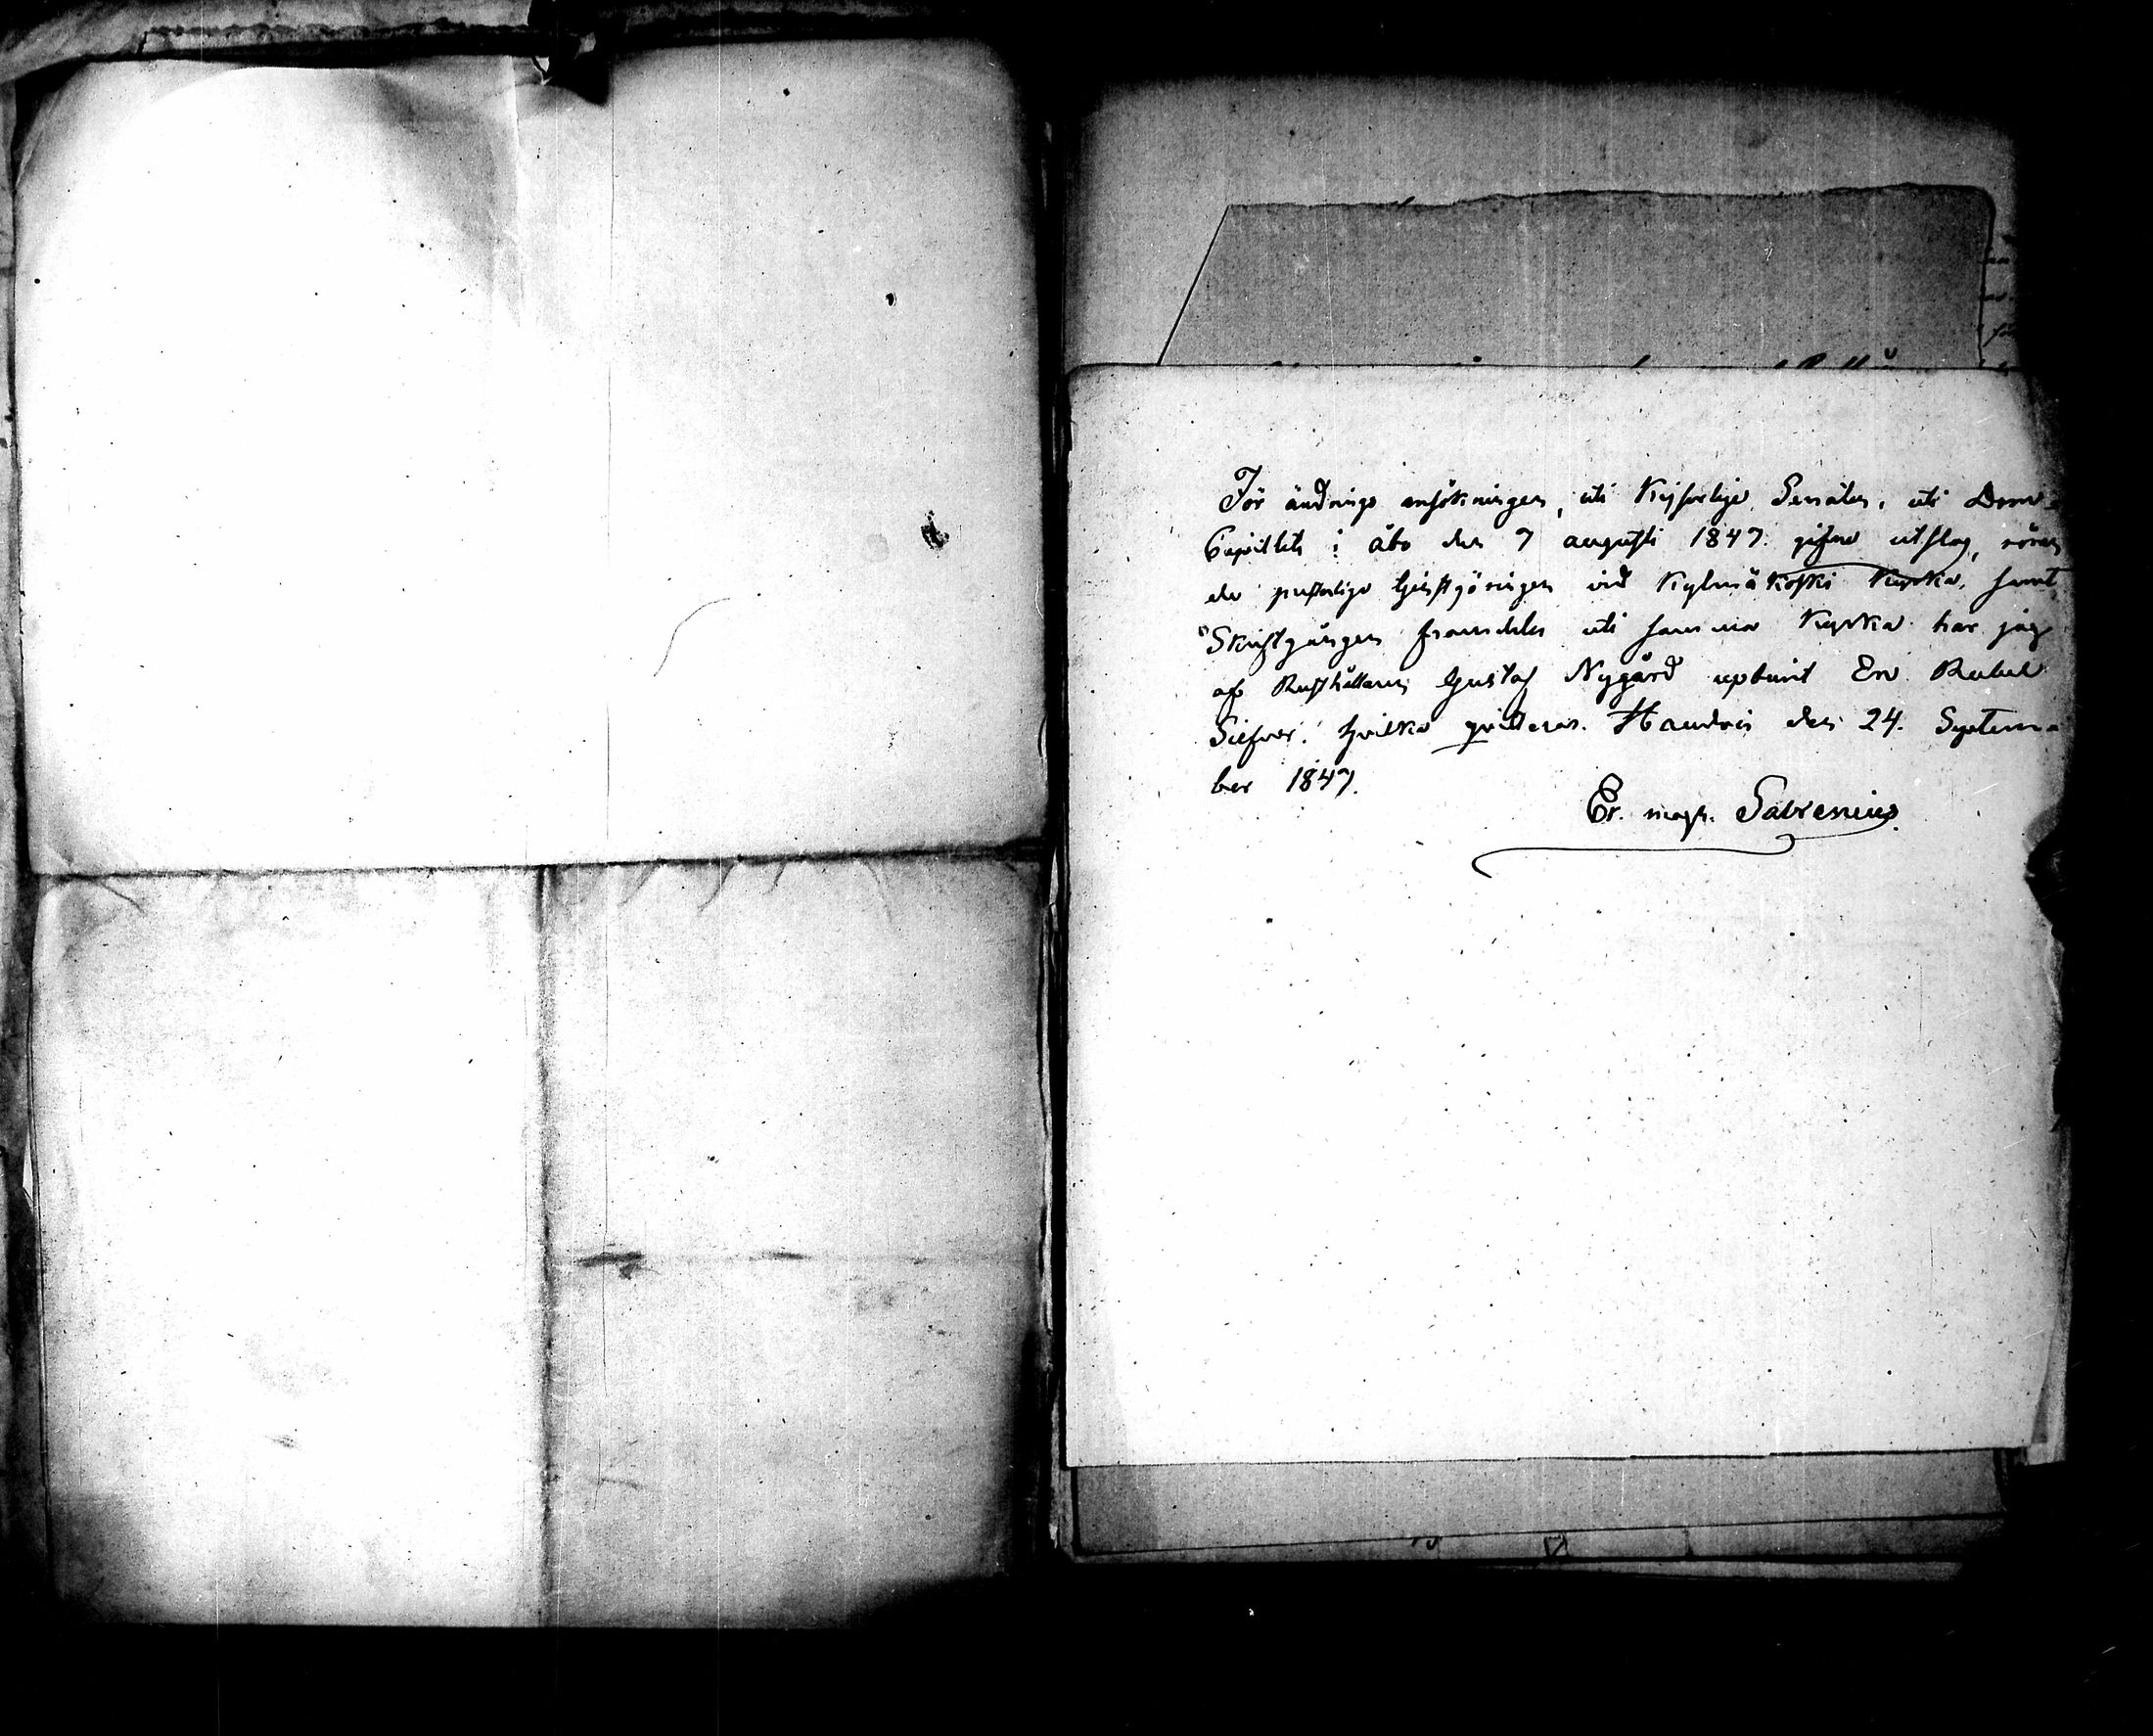 För ändrings ansökningen, uti Kejserlige Senaten, uti Dom-
Capitlets i Åbo den 7 augusti 1847 gifne utslag, röran
de presterliga tjenstgöringen vid Kylmäkoski Kyrka, samt
Skriftgången framdeles uti samma Kyrka har jag
af Rusthållaren Gustaf Nygård upburit En Rubel
Silfver; hvilka qvitteras. Haudois den 24. Septem-
ber 1847.
Er. magn. Sabrenius.